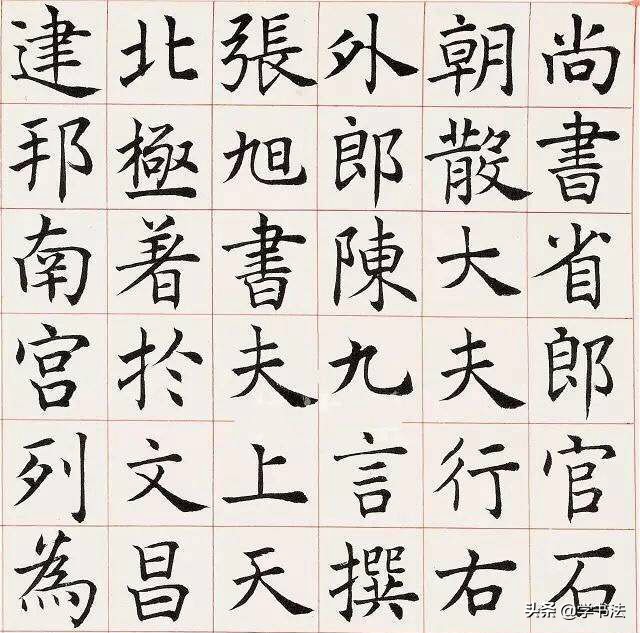 尚書省郎官石
朝散大夫行右
外郎陳九言撰
張旭書夫上天
北極著於文昌
建邦南宮列為
头条 @学书法